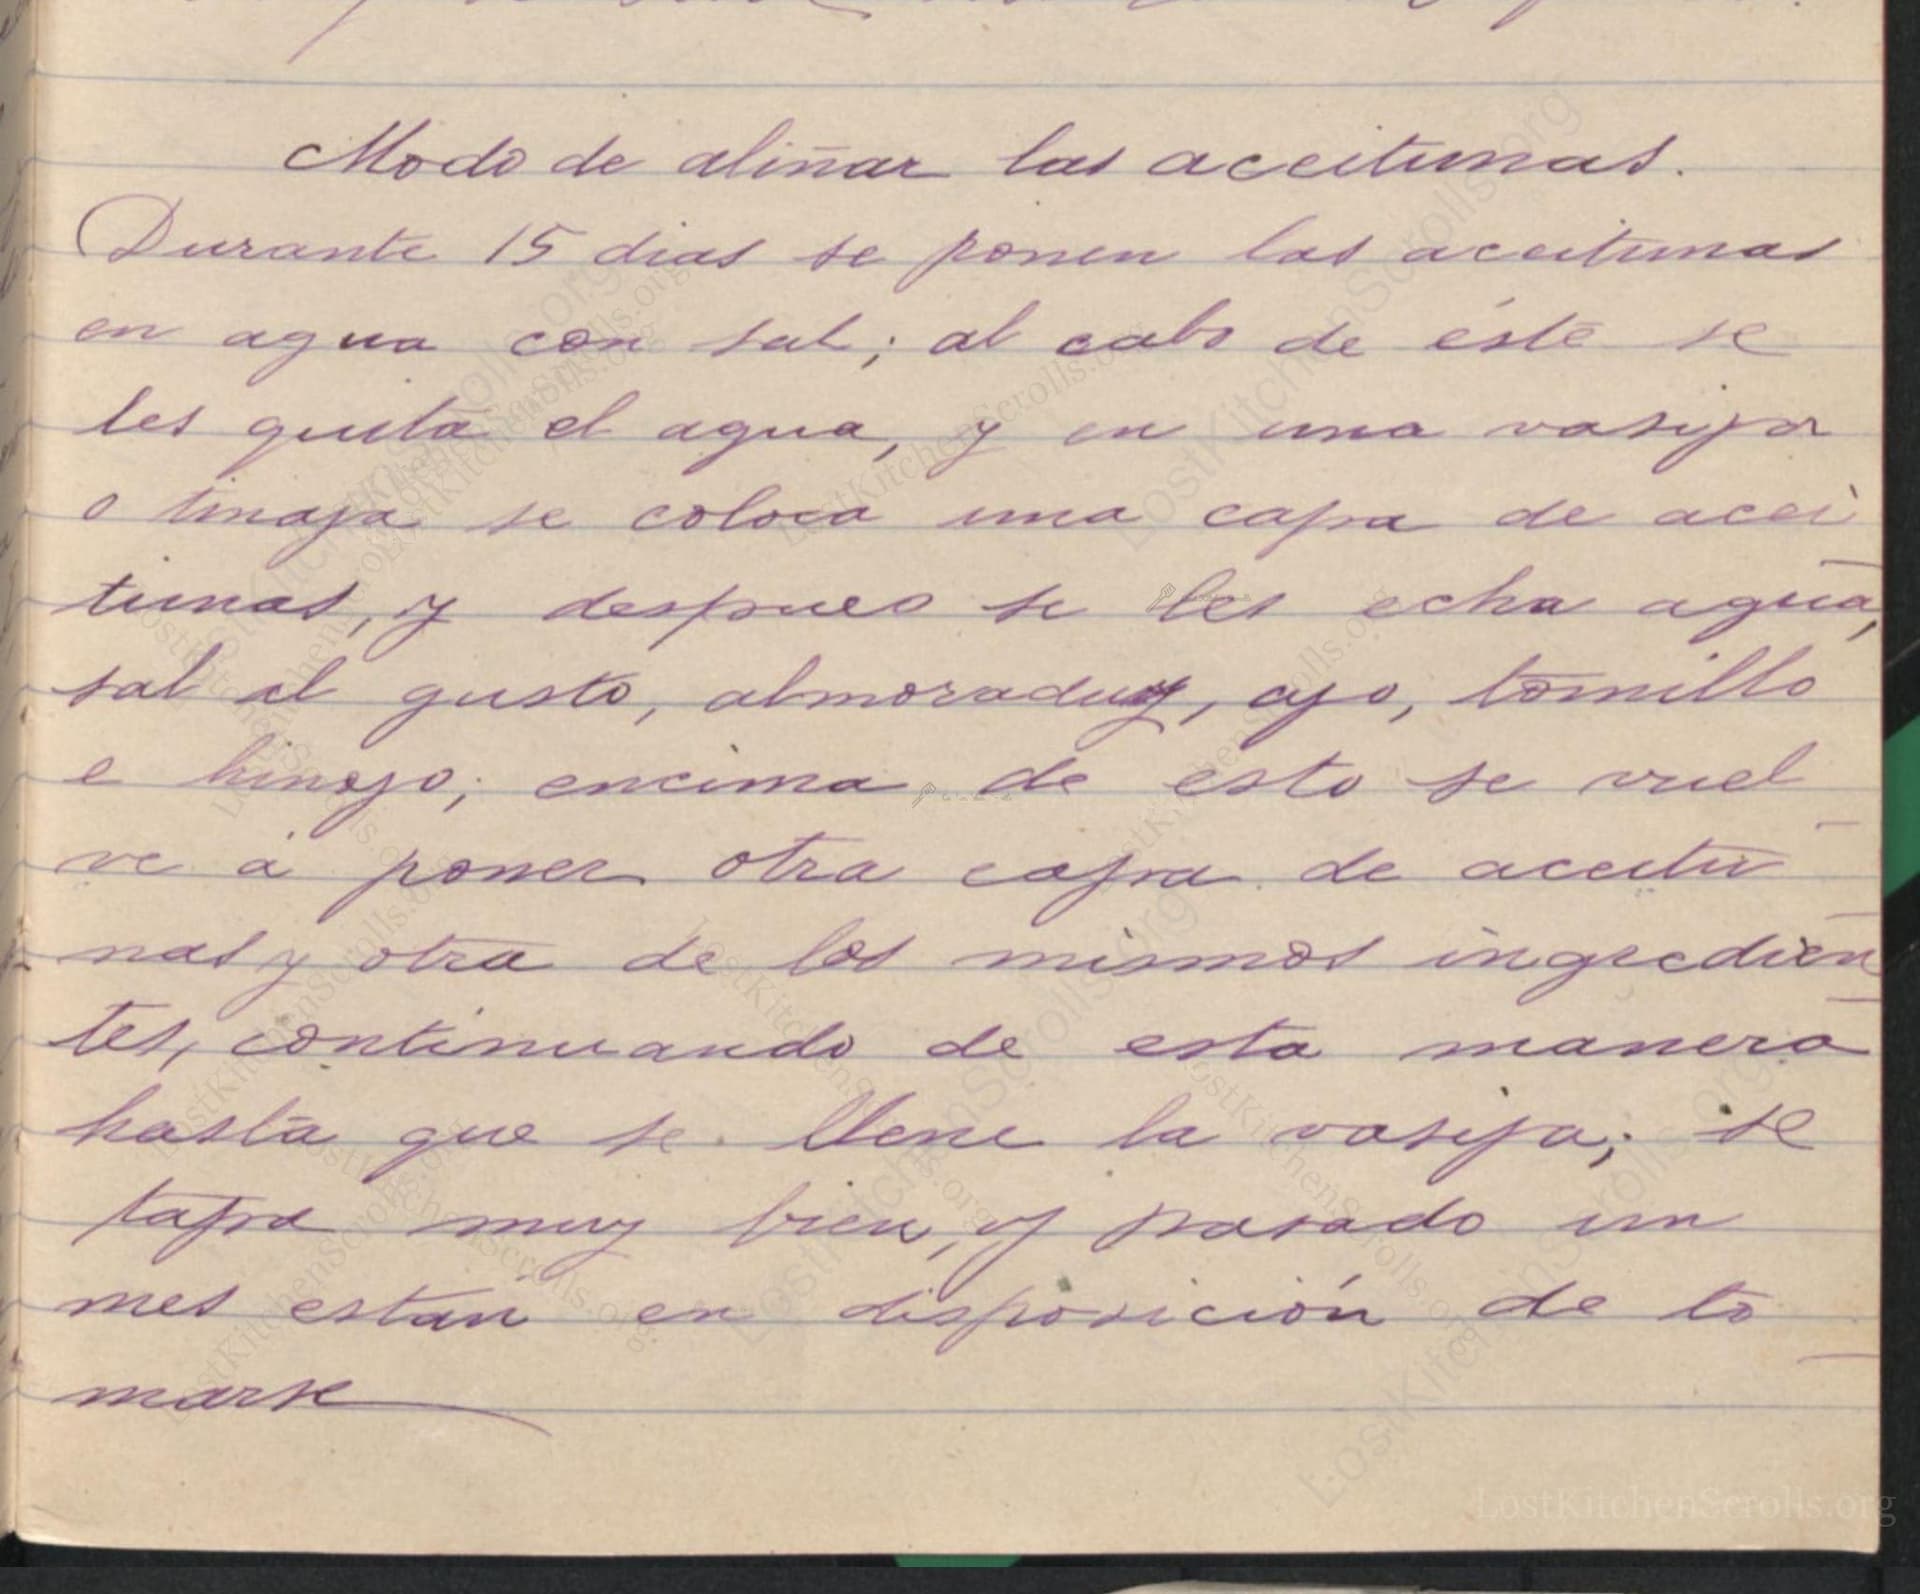 Modo de aliñar las aceitunas.
Durante 15 dias se ponen las aceitunas
en agua con sal; al cabo de éste se
les quita el agua, y en una vasija
o tinaja se coloca una capa de acei
tunas, y despues se les echa agua,
sal al gusto, almoraduz, ajo, tomillo
e hinojo; encima de esto se vuel
ve á poner otra capa de aceitu
nas y otra de los mismos ingredien
tes, continuando de esta manera
hasta que se llene la vasija; se
tapa muy bien, y pasado un
mes están en disposición de to
marse
LostKitchenScrolls.org